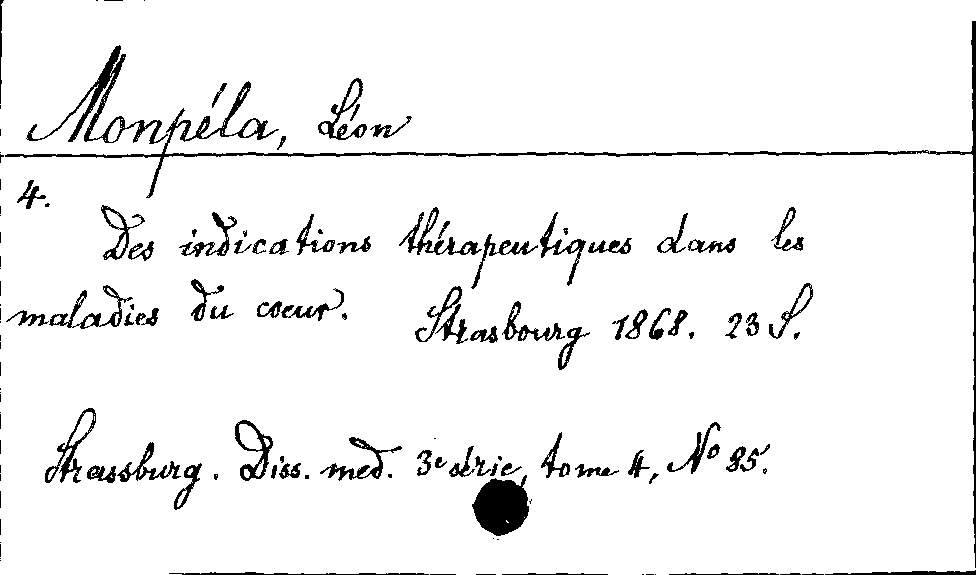 Monpéla, Léon
4.
Des indications thérapeutiques dans les
maladies du coeur. Strasbourg 1868. 23 S.
Strassburg. Diss. med. 3e série, tome 4, No 85.